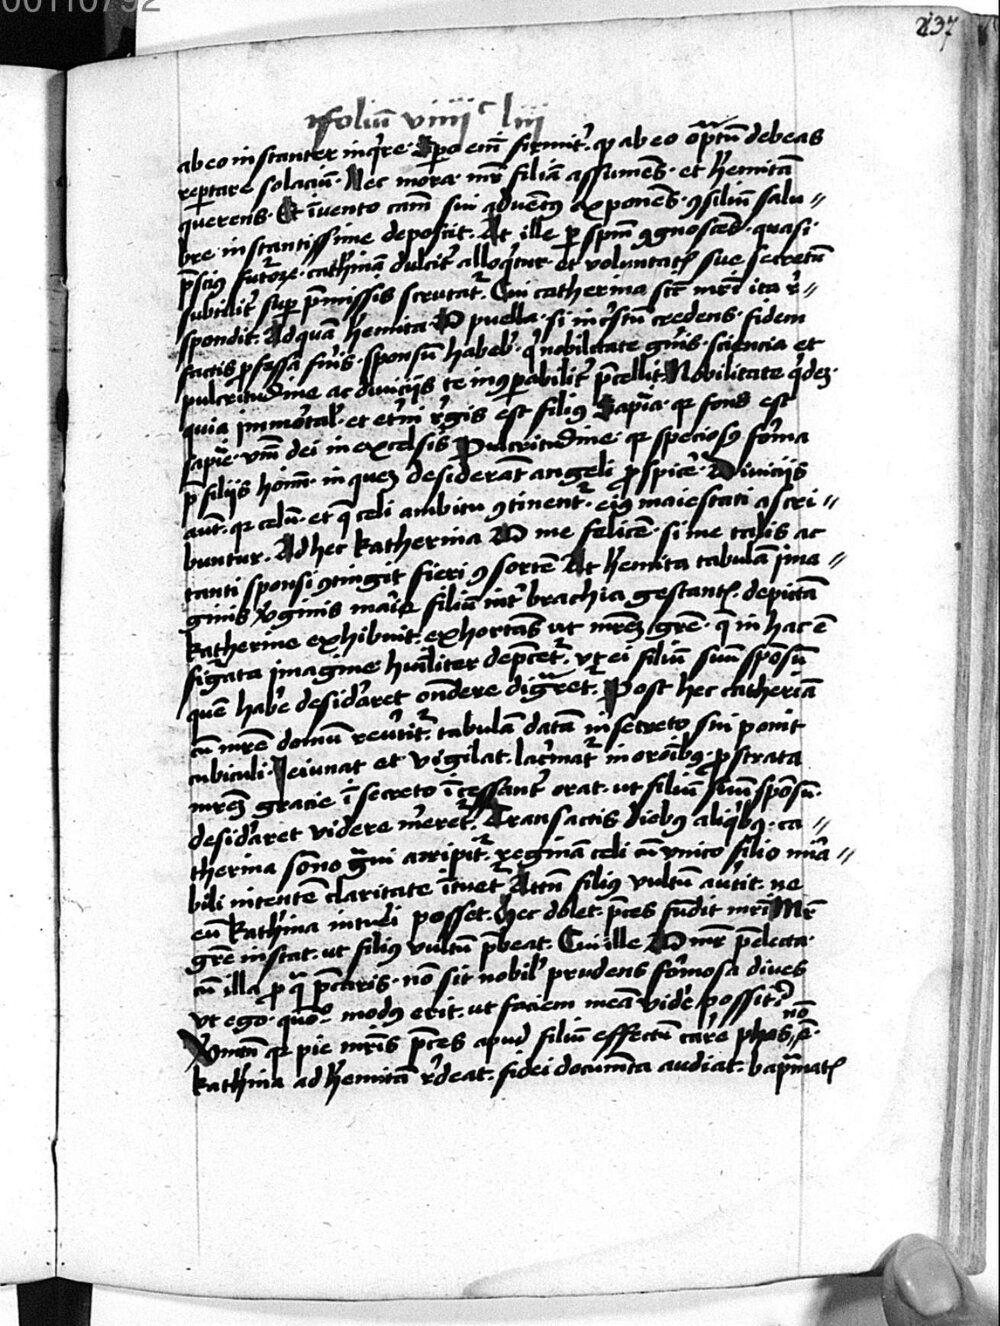 00110792
237
Foliū viiijᶜ liij
ab eo instanter inq̄re. Spo eni firmit. qz ab eo optatū debeas
repertare solaciū. Nec mora. mr̄ filiā assumēs. et hēmitā
querens. Et īvento cauſā sui adventꝰ exponēs. ꝯsiliū salu〃
bre instantissime deposcit. At ille per spm̄ ꝯgnoscēs. quasi
p̄sciꝰ futorꝝ. cathinā dulcit alloq̄tur. et voluntatꝭ sue secretū
subtilit sup p̄missis scrutat. Cui catherina sic mr̄i ita r̄〃
spondit. Ad quā hemita. O puella. si in xp̄tū credens. fidem
factis ꝓfessa fūis. sponsū habeb. q nobilitate gn̄is. sciencia et
pulcritudine ac diviciis te incōparabilit p̄cellit. Nobilitate qdeꝫ.
quia immortal. et et̄ni r̄gis est filiꝰ. Sapīa. qz fons est
sapīe. v̄m dei in excelsis. Pulcritudine. qz speciosꝰ forma
p̄ filiis hoīm. in queꝫ desiderāt angeli ꝓspice. Diviciis
aut. qz celū. et q̄ celi ambitu ꝯtinent. eiꝰ maiestati ascri〃
buntur. Ad hec katherina. O me felicē. si me talis ac
tanti sponsi ꝯtingit fieri ꝯsortē. At hēmita tabulā ima〃
ginis v̄ginis marie filiū int brachia gestantꝭ. depictā
katherine exhibuit. exhortās ut mr̄eꝫ gr̄e. q̄ in hac ē
figata imagine hūiliter dep̄cet. vt ei filiū suū spōsū
quē habe desidaret ondere digret. Post hec catherīa
cū mr̄e domū revtit. tabulā datā in secreto sui ponit
cubiculi. Ieiunat et vigilat. lacmat in orōibꝰ. ꝓstrata
mr̄eꝫ gracie ī secreto īcessant orat. ut filiū suū spōsū.
desidaret videre meret. Transactis diebꝰ aliqbꝰ. ca〃
therina sōno gvi arripit. reginā celi cū unico filio mīa〃
bili intentē claritate ītuet. Attn̄ filiꝰ vultū avtit. ne
eū kathina intuei posset. Hec dolet. p̄ces fudit mr̄i. Mr̄
gr̄e instat. ut filiꝰ vultū p̄beat. Cui ille. O mr̄ p̄electa.
cū illa ꝓ q̄ p̄caris. nō sit nobil prudens formosa dives
ut ego. quō modꝰ erit. ut faciem meā vide possit?
Vmtn̄ qz pie mr̄is p̄ces apud filiū effectu care phas nō ē
kathina ad hēmitā rdeat. fidei documēta audiat. bap̄matꝭ